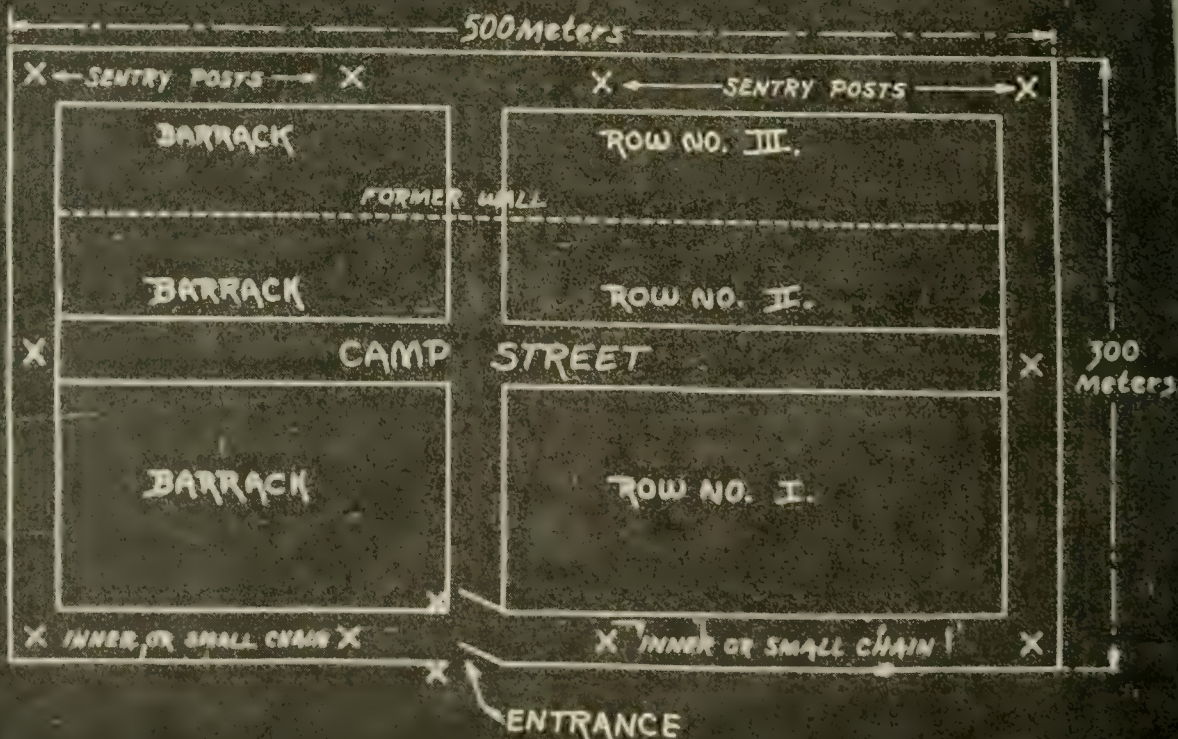 500 Meters
X SENTRY POSTS X X SENTRY POSTS X
BARRACK ROW NO. III.
FORMER WALL
BARRACK ROW NO. II.
X CAMP STREET X
300
Meters
BARRACK ROW NO. I.
X
X INNER OR SMALL CHAIN X X INNER OR SMALL CHAIN X
X
ENTRANCE